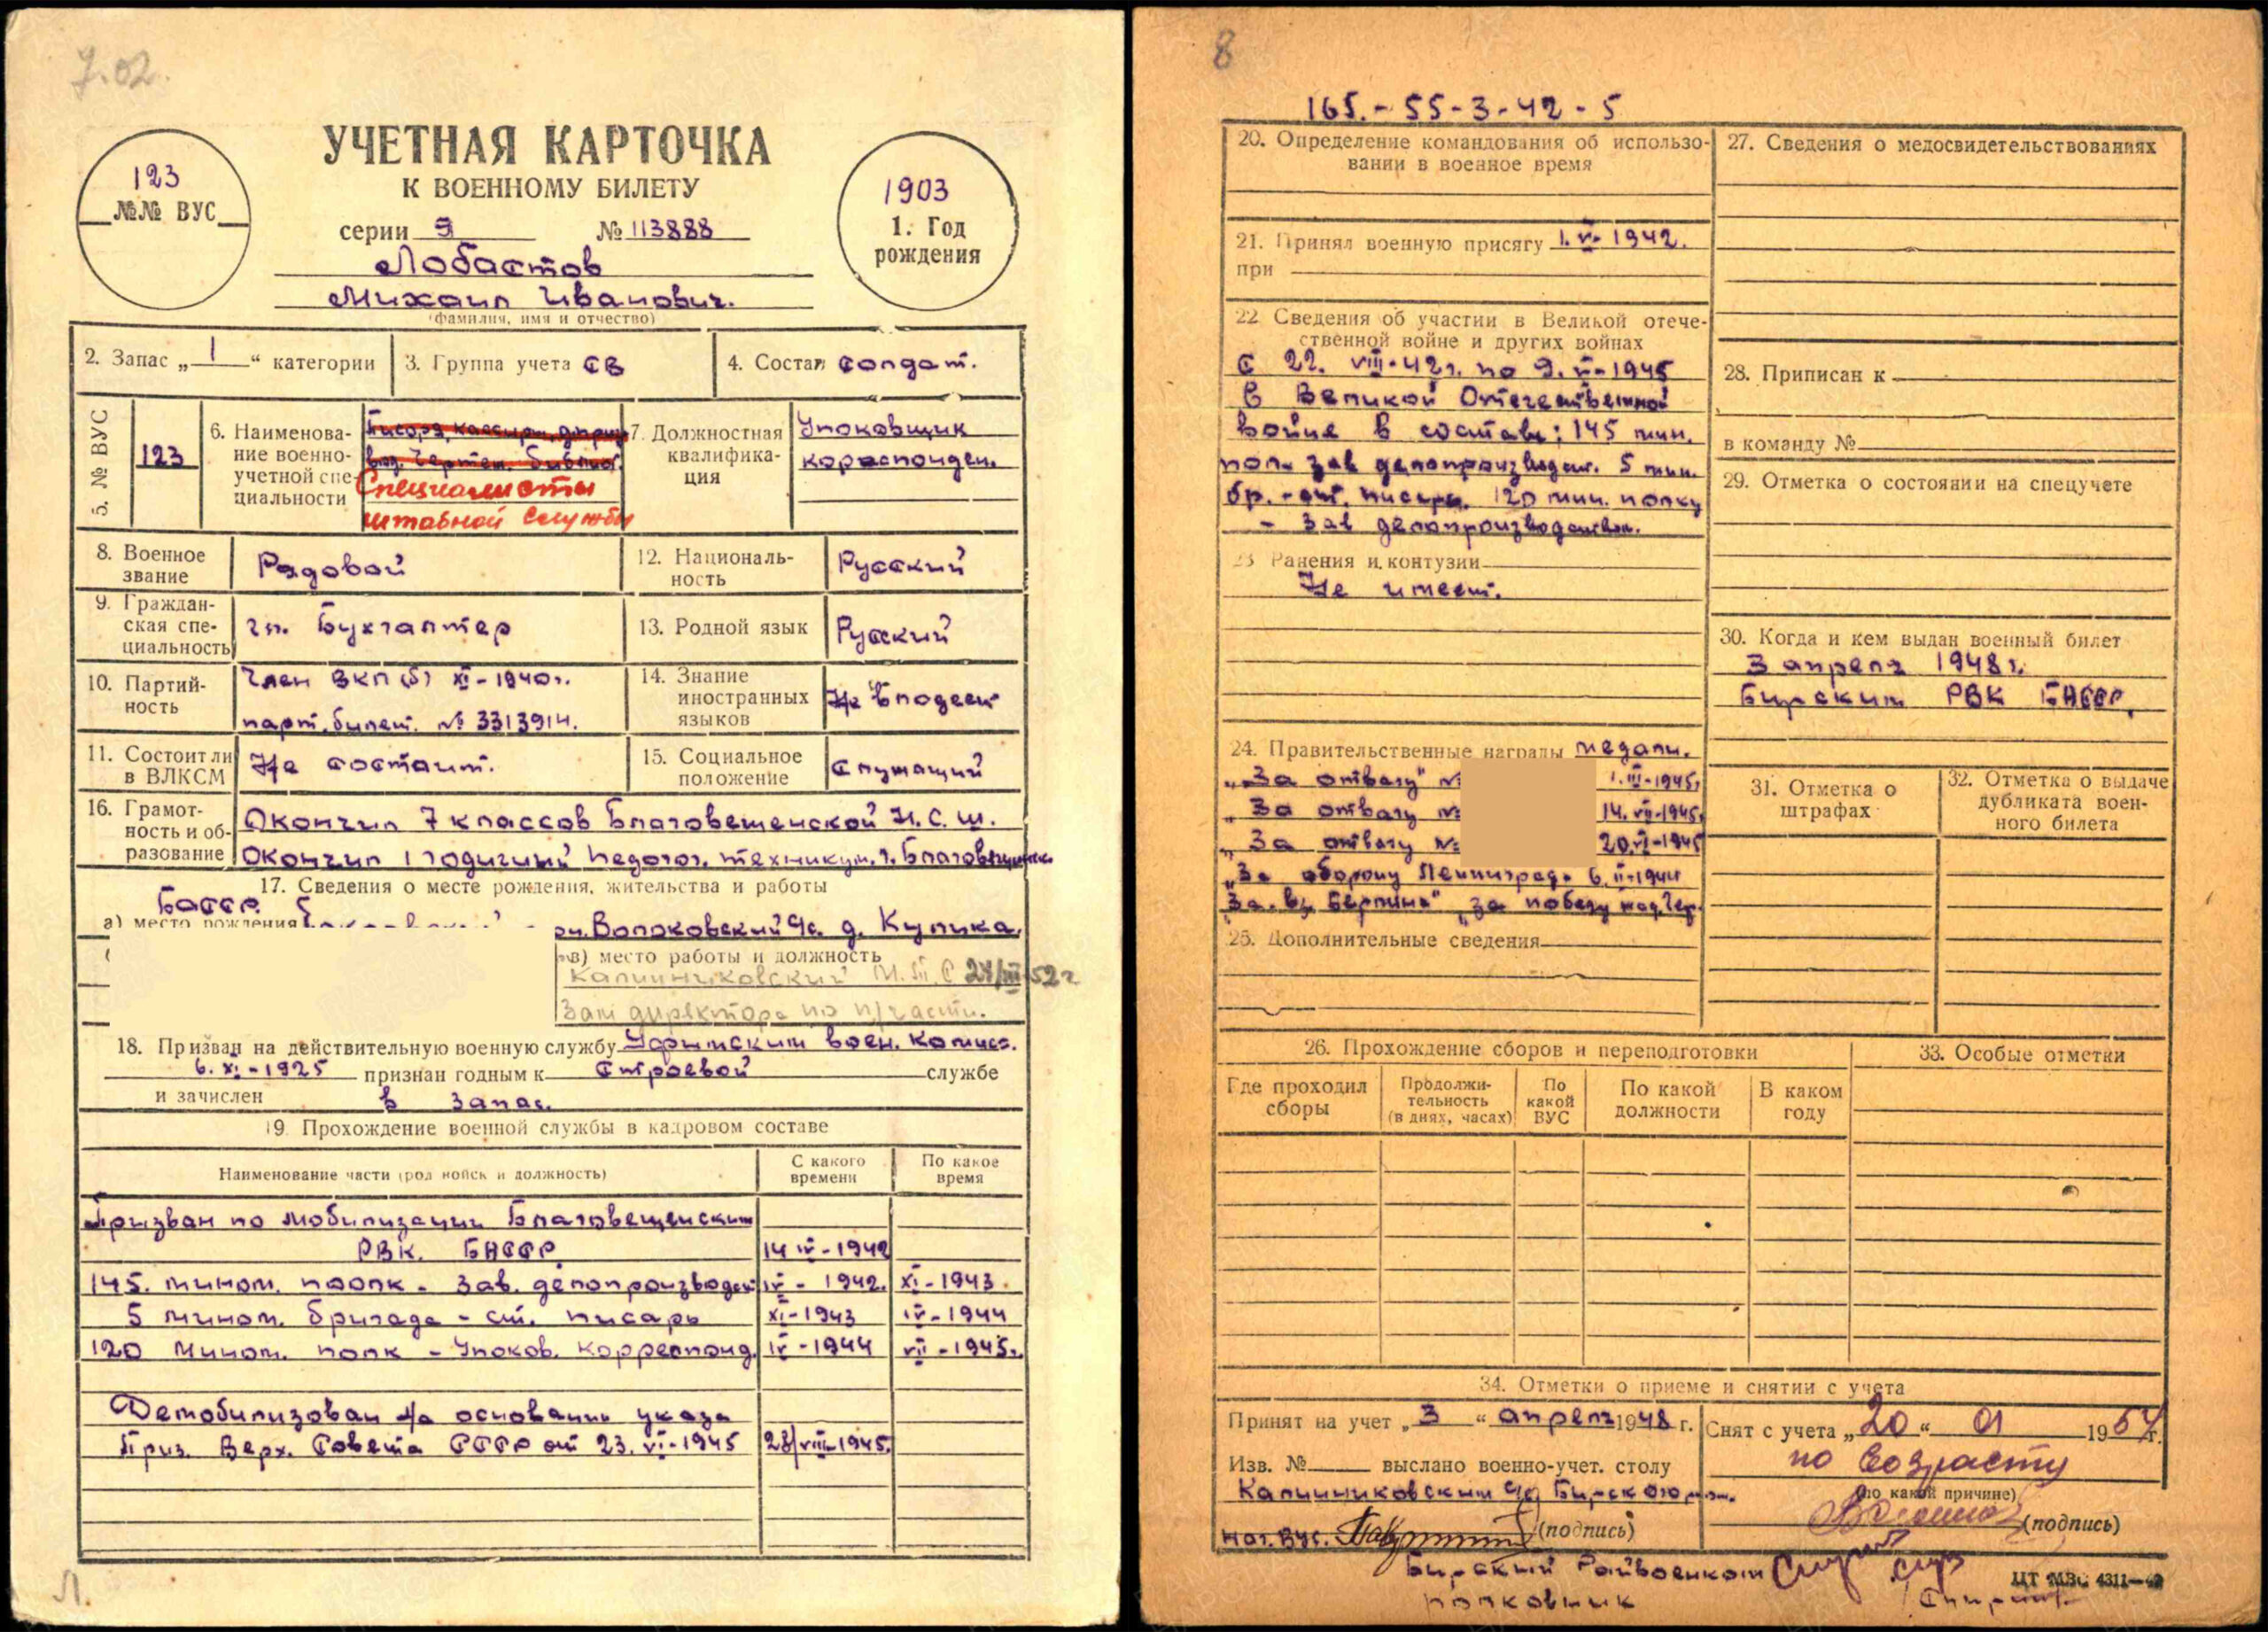 7.02.
УЧЕТНАЯ КАРТОЧКА
К ВОЕННОМУ БИЛЕТУ
123
№№ ВУС
1903
1. Год
рождения
серии 9 № 113888
Лобастов
Михаил Иванович.
(фамилия, имя и отчество)
2. Запас „ 1 “ категории
3. Группа учета СВ
4. Состав солдат.
5. № ВУС
123
6. Наименова-
ние военно-
учетной спе-
циальности
Специалисты
штабной службы
7. Должностная
квалифика-
ция
Упоковщик
кореспонден.
8. Военное
звание
Рядовой
12. Националь-
ность
Русский
9. Граждан-
ская спе-
циальность
гл. Бухгалтер
13. Родной язык
Русский
10. Партий-
ность
Член ВКП(б) XI-1940г.
парт. билет. № 3313914.
14. Знание
иностранных
языков
Не владеет
11. Состоит ли
в ВЛКСМ
Не состоит.
15. Социальное
положение
Служащий
16. Грамот-
ность и об-
разование
Окончил 7 классов Благовещенской Н.С.Ш.
Окончил 1 годичный педагог. техникум. г. Благовещенск
17. Сведения о месте рождения, жительства и работы
БАССР.
а) место рождения
Волоковский с/с. д. Кулика.
в) место работы и должность
Калинниковский М.Т.С 24/III-52г
Зам директора по п/части.
18. Призван на действительную военную службу Уфимским воен. комис.
6. XI-1925 признан годным к Строевой службе
и зачислен в запас.
19. Прохождение военной службы в кадровом составе
Наименование части (род войск и должность)
С какого
времени
По какое
время
Призван по мобилизации Благовещенским
РВК. БАССР. 14 IV-1942
145. мином. поолк - Зав. делопроизводст IV - 1942. XI-1943.
5 мином. бригада - ст. писарь XI-1943 IV-1944
120 мином. полк - Упоков. Корреспонд. IV-1944 VII-1945г.
Демобилизован на основании указа
През. Верх. Совета СССР от 23. VI-1945 23/VIII-1945.
Л.
8
165.-55-3-42-5
20. Определение командования об использо-
вании в военное время
21. Принял военную присягу 1. V- 1942.
при
22. Сведения об участии в Великой отече-
ственной войне и других войнах
С 22. VIII-42г. по 9. V-1945
В Великой Отечественной
войне в составе: 145 мин.
пол. зав делопроизводст. 5 мин.
бр. - ст. писарь. 120 мин. полку
- зав делопроизводством.
23. Ранения и контузии
Не имеет.
24. Правительственные награды медали.
„За отвагу" № 1. III-1945г
„За отвагу № 14. VII-1945г
„За отвагу № 20. VI-1945
„За оборону Ленинграда 6. II-1944
„За. вз. Берлина" „за победу над. Гер.
25. Дополнительные сведения
26. Прохождение сборов и переподготовки
Где проходил
сборы
Продолжи-
тельность
(в днях, часах)
По
какой
ВУС
По какой
должности
В каком
году
27. Сведения о медосвидетельствованиях
28. Приписан к
в команду №
29. Отметка о состоянии на спецучете
30. Когда и кем выдан военный билет
3 апреля 1948 г.
Бирским РВК БАССР.
31. Отметка о
штрафах
32. Отметка о выдаче
дубликата воен-
ного билета
33. Особые отметки
34. Отметки о приеме и снятии с учета
Принят на учет „ 3 “ апреля 1948 г.
Изв. № выслано военно-учет. столу
Калинниковским с/с Бирского
нач. ВУС. (подпись)
Снят с учета „ 20 “ 01 1954 г.
по возрасту
(по какой причине)
(подпись)
Бирский Райвоенком
полковник
ЦТ МВС 4311—49